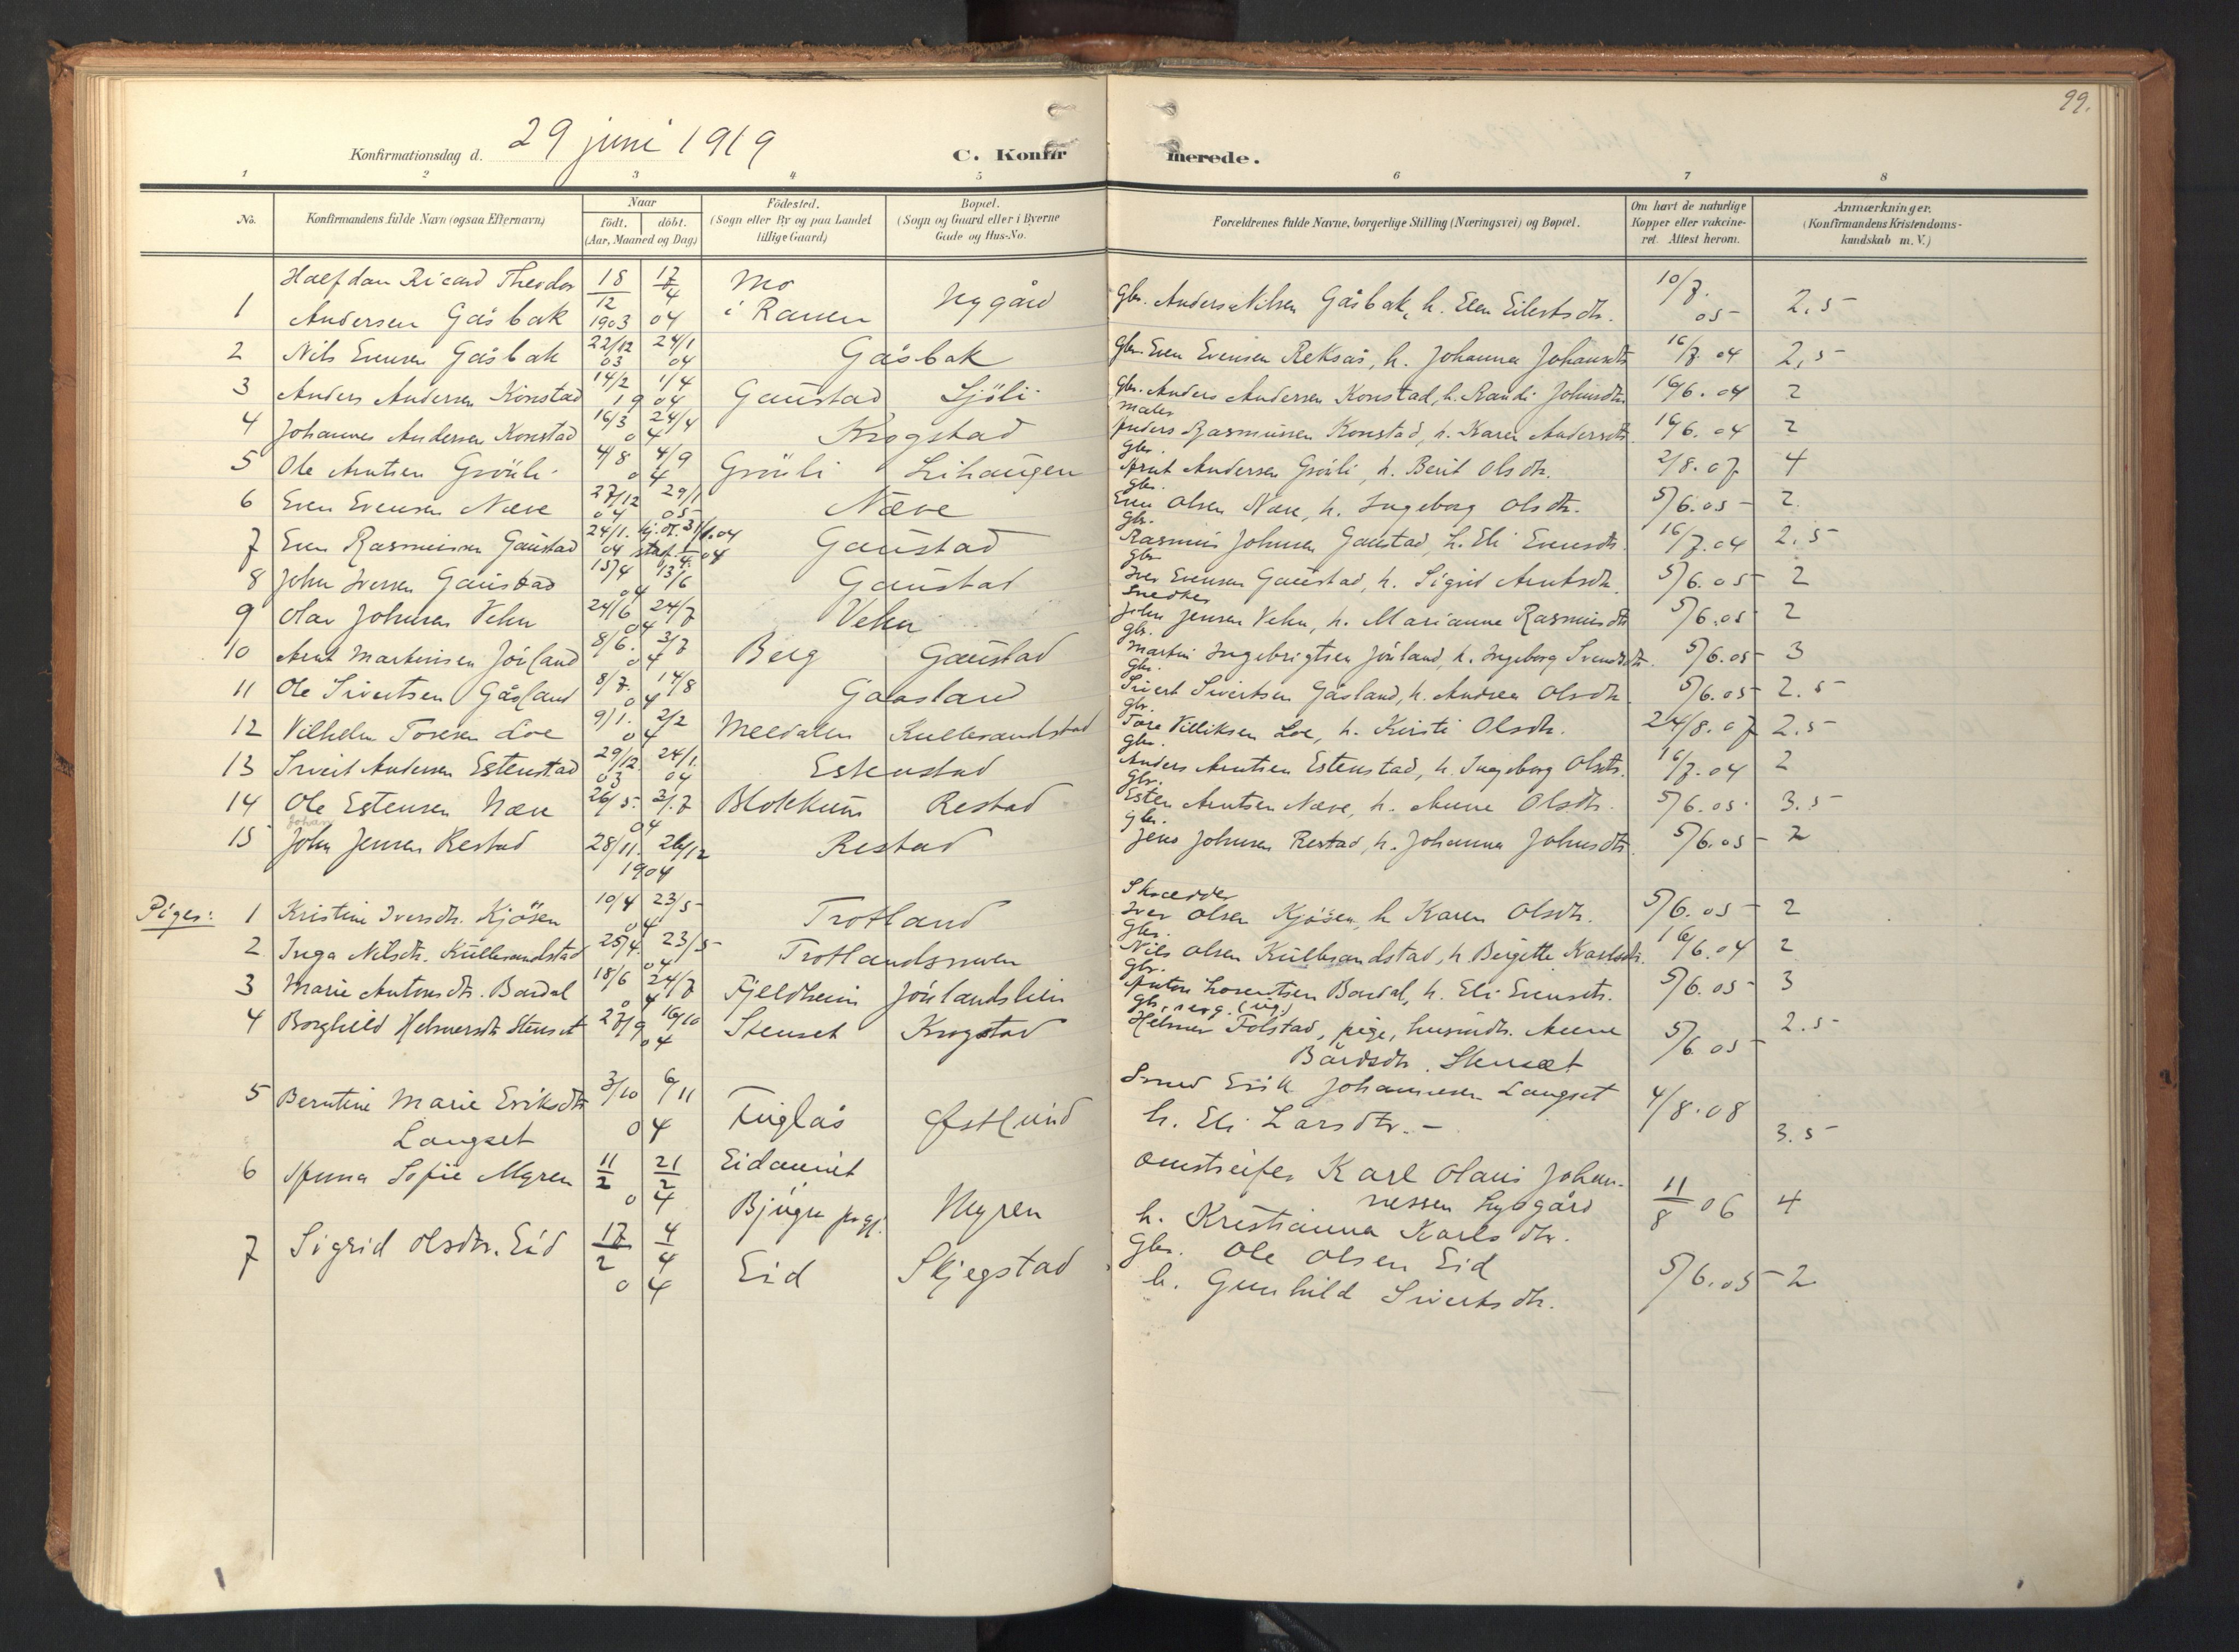 99.
Konfirmationsdag d. 29 juni 1919 C. Konfirmerede.
1 2 3 4 5 6 7 8
No. Konfirmandens fulde Navn (ogsaa Efternavn) Naar födt. döbt. (Aar, Maaned og Dag) Födested. (Sogn eller By og paa Landet tillige Gaard) Bopæl. (Sogn og Gaard eller i Byerne Gade og Hus-No. Forældrenes fulde Navne, borgerlige Stilling (Næringsvei) og Bopæl. Om havt de naturlige Kopper eller vakcineret. Attest herom. Anmærkninger. (Konfirmandens Kristendomskundskab m. V.)
1 Halfdan Ricard Theodor Andersen Gåsbak 18/12 1903 17/4 04 Mo i Ranen Nygård Gbr. Anders Nilsen Gåsbak, h. Elen Eilertsdtr. 10/7. 05 2,5
2 Nils Evensen Gåsbak 22/12 03 24/1 04 Gåsbak Gbr. Even Evensen Reksås, h. Johanna Johansdtr 16/7 04 2,5
3 Anders Andersen Konstad 14/2 1/4 1904 Gaustad Sjöli Gbr. Anders Andersen Konstad, h. Randi Johnsdtr 16/6. 04 2
4 Johannes Andersen Konstad 16/3 24/4 04 Krogstad Maler Anders Rasmussen Konstad, h. Karen Andersdtr. 16/6. 04 2
5 Ole Arntsen Gröuli 4/8 4/9 04 Gröuli Lihaugen Gbr. Arnt Andersen Gröuli, h. Berit Olsdtr. 2/8. 07 4
6 Even Evensen Næve 27/12 04 29/1 05 Næve Gbr. Even Olsen Næve, h. Ingeborg Olsdtr. 5/6. 05 2.
7 Even Rasmussen Gaustad 24/1. 04 hj. dt. 31/1.04 stadf. 1/4. 04 Gaustad Gbr. Rasmus Johnsen Gaustad, h. Eli Evensdtr. 16/7. 04 2.5
8 John Iversen Gaustad 15/4 13/6 04 Gaustad Gbr Iver Evensen Gaustad, h. Sigrid Arntsdtr. 5/6. 05 2
9 Olav Johnsen Vehn 24/6 24/7 04 Vehn Snedker John Jensen Vehn, h. Marianne Rasmusdtr 5/6. 05 2
10 Arnt Martinusen Jöuland 8/6. 3/7 04 Berg Gaustad Gbr. Martin Ingebrigtsen Jöuland, h. Ingeborg Svendsdtr. 5/6. 05 3
11 Ole Sivertsen Gåsland 8/7. 14/8 04 Gaasland Gbr. Sivert Sivertsen Gåsland, h. Andrea Olsdtr. 5/6. 05 2.5
12 Vilhelm Toresen Loe 9/1. 2/2 04 Meldalen Kullbrandstad Gbr. Tore Villiksen Loe, h. Kirsti Olsdtr. 24/8. 07 2.5
13 Sivert Andersen Estenstad 29/12. 03 24/1. 04 Estenstad Gbr. Anders Arntsen Estenstad, h. Ingeborg Olsdtr. 16/7. 04 2
14 Ole Estensen Næve 26/5. 3/7 04 Blokkum Restad Gbr. Esten Arntsen Næve, h. Anne Olsdtr. 5/6. 05. 3.5
Johan
15 John Jensen Restad 28/11. 26/12 1904 Restad Gbr. Jens Johnsen Restad, h. Johanna Johnsdtr. 5/6. 05 2
Piger: 1 Kristine Iversdtr. Kjösen 10/4 23/5 04 Trotland Skrædder Iver Olsen Kjösen, h. Karen Olsdtr. 5/6. 05 2
2 Inga Nilsdtr. Kullbrandstad 25/4. 23/5 04 Trotlandsmoen Gbr. Nils Olsen Kullbrandstad, h. Bergitte Karlsdtr. 16/6. 04 2
3 Marie Antonsdtr. Bardal 18/6 24/7 04 Fjeldheim Jöulandslien Gbr. Anton Lorentsen Bardal, h. Eli Evensdtr. 5/6. 05 3
4 Borghild Helmersdtr Stenset 27/9 16/10 04 Stenset Krogstad Helmer Folstad, pige, husmdtr. Anne Bårdsdtr. Stensæt 5/6. 05 2.5
5 Berntine Marie Eriksdtr Langset 3/10 6/11 04 Fuglås Östlund Smed Erik Johannesen Langset h. Eli Larsdtr. 4/8. 08 3.5
6 Anna Sofie Myren 11/2 21/2 04 Eidaunet Bjugn prgj. Myren omstreifer Karl Olaus Johannessen Nygård h. Kristianna Karlsdtr. 11/8 06 4
7 Sigrid Olsdtr. Eid 17/2 4/4 04 Eid Skjegstad Gbr. Ole Olsen Eid h. Gunhild Sivertsdtr. 5/6. 05 2